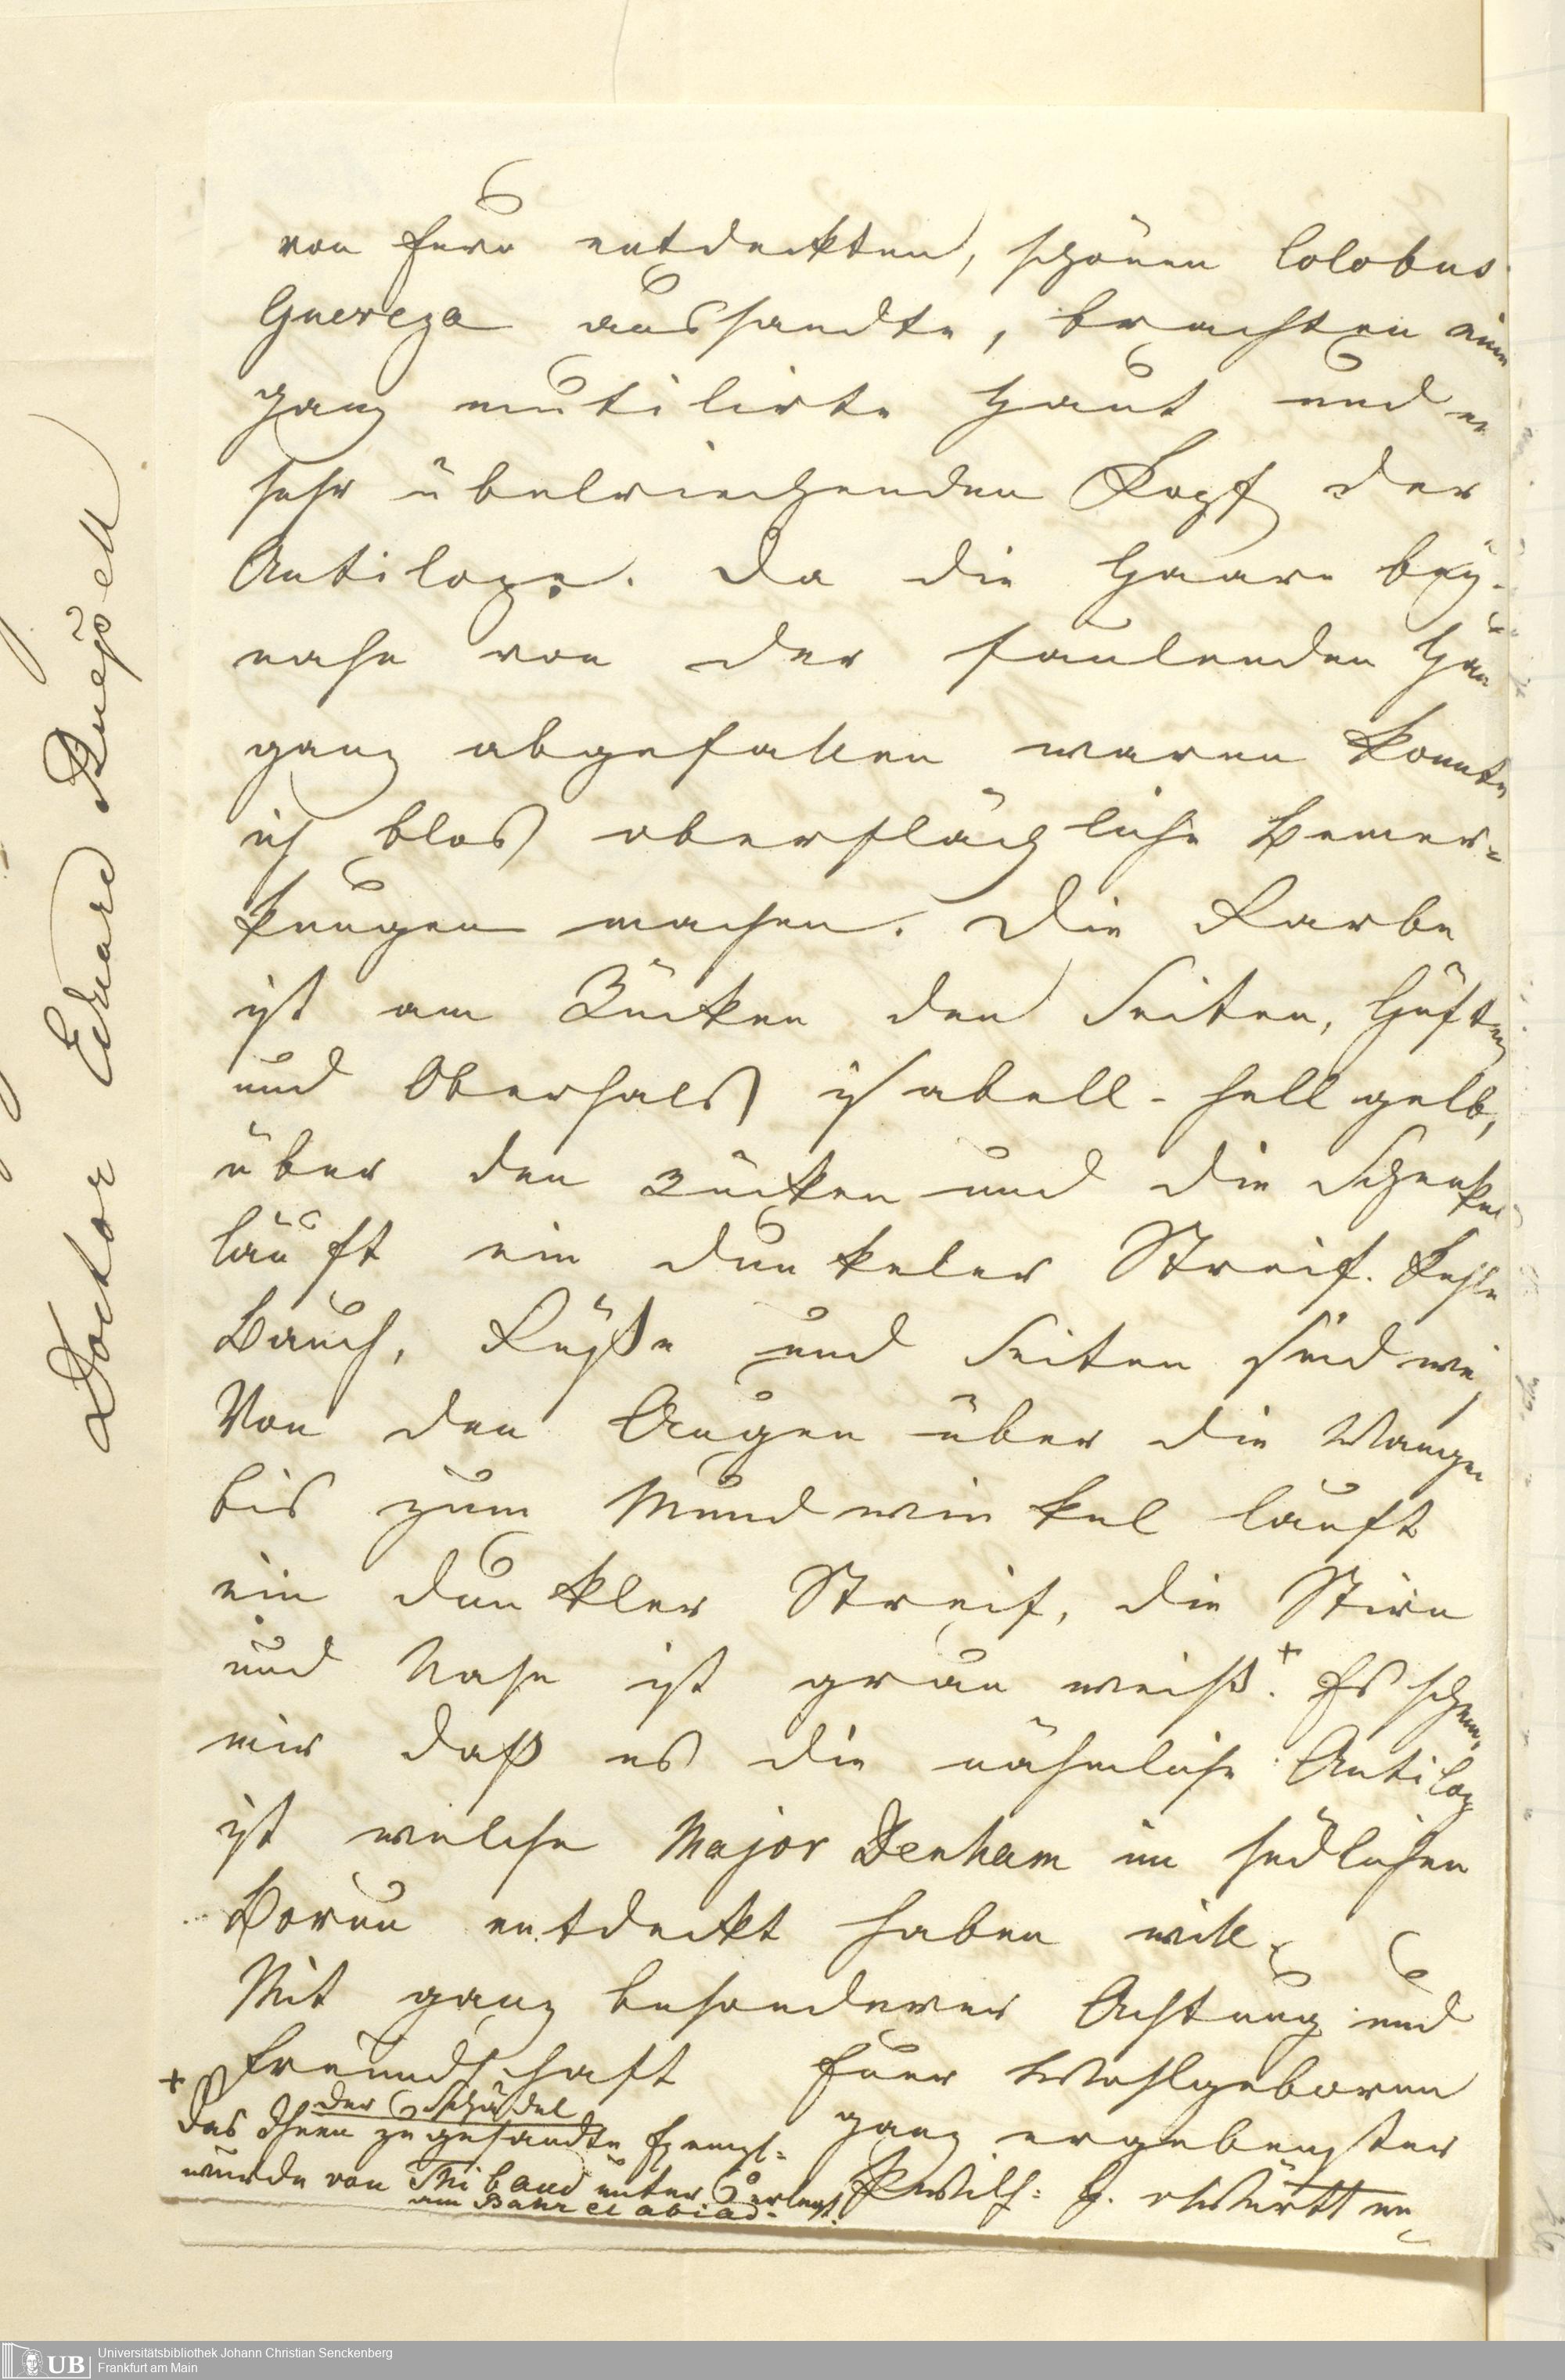 von Euer entdeckten, schönen Colobus
Guereza aussandte, brachten eine
ganz mutilirte Haut und
sehr übelriechenden Kopf der
Antilope. Da die Haare bey-
nahe von der faulenden Hau
ganz abgefallen waren konnte
ich blos oberflächliche Bemer=
kungen machen. Die Farbe
ist am Rücken den Seiten, Hüften
und Oberhals isabell-hellgelb,
über den Rücken und die Schenkel
läuft ein dunkeler Streif. Kehle
Bauch, Füße und Seiten sind wei
Von den Augen über die Wangen
bis zum Mundwinkel läuft
ein dunkler Streif, die Stirn
und Nase ist grau weiß.+ Es schein
mir daß es die nähmliche Antilop
ist welche Major Denham im südlichen
Bornu entdeckt haben will.
Mit ganz besonderer Achtung und
Freundschaft Euer Wohlgeboren
ganz ergebenster
PWilh: H. v Württem
+ der Schädel
Das Ihnen zugesandte Exempl=
wurde von Thibaud unter erlegt.
am Bahr el abiad.
Doctor Eduard Rueppell
UB Universitätsbibliothek Johann Christian Senckenberg
Frankfurt am Main